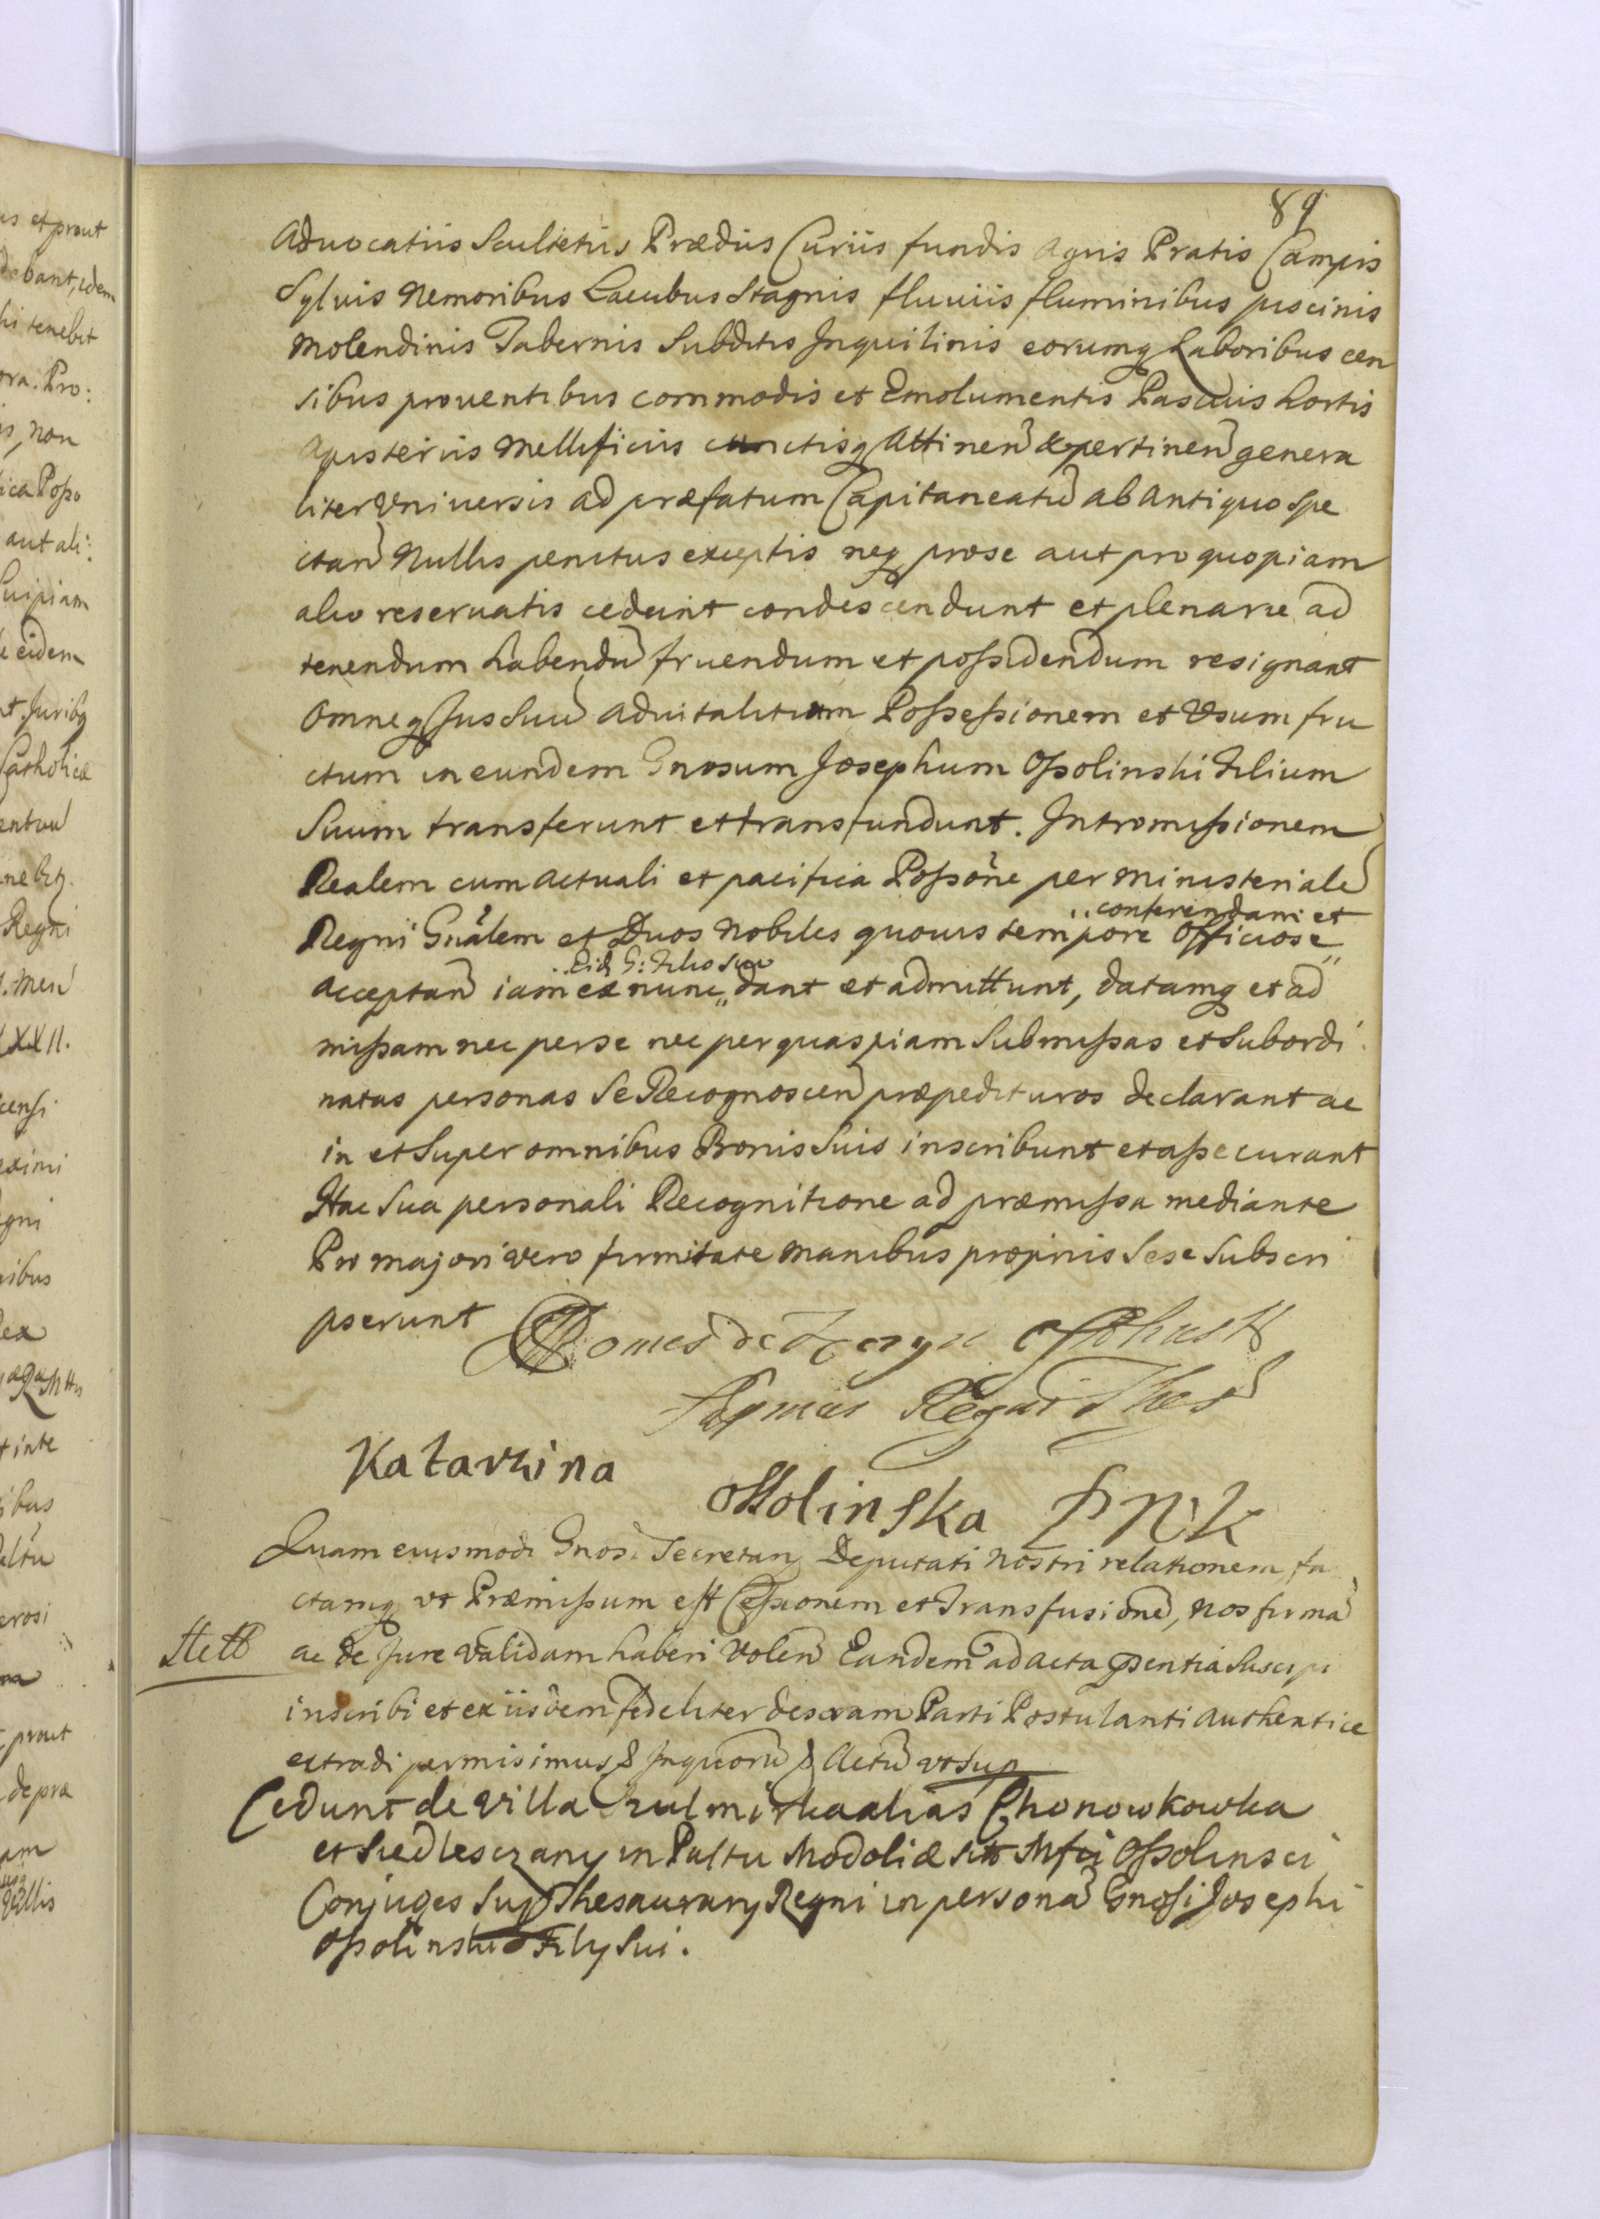 89
Advocatiis Scultetiis Prædiis Curiis fundis Agris Pratis Campis
Sylvis Nemoribus Lacubus Stagnis fluviis fluminibus piscinis
Molendinis Tabernis Subditis Inquilinis eorumq Laboribus cen
sibus proventibus commodis et Emolumentis Pascuis hortis
Apisteriis Mellificiis cunctisq Attinen & pertinen genera
liter Universis ad præfatum Capitaneatū ab antiquo spe
ctan Nullis penitus exceptis neq prose aut pro quopiam
alio reservatis cedunt condescendunt et plenarie ad
tenendum habendū fruendum et possidendum resignant
Omneq Jus Suū advitalitium Possessionem et Usum fru
ctum in eundem Gnosum Josephum Ossolinski Filium
Suum transferunt et transfundunt. Intromissionem
Realem cum actuali et pacifica Possone per Ministerialē
conferendam et
Regni Gnalem et Duos Nobiles quovis tempore Officiose
Eid G: Filio suo
acceptan iam ex nunc dant et admittunt, datamq et ad
missam nec perse nec per quaspiam Submissas et Subordi
natas personas Se Recognoscen præpedituros declarant ac
in et Super omnibus Bonis Suis inscribunt et assecurant
Hac Sua personali Recognitione ad præmissa mediante
Pro majori vero firmitate manibus propriis Sese Subscri
pserunt
Comes de
Supmus Regni Thes
Katarzina
Ossolinska P N K
Quam eiusmodi Gnosi Secretarij Deputati Nostri relationem fa
ctamq ut Præmissum est Cessionem et Transfusionē, nos firmā
ac de Jure validam haberi Volen Eandem ad acta psentia Suscipi
inscribi et ex iisdem fideliter descram Parti Postulanti authentice
extradi permisimus Inquorū Actū ut Sup
Cedunt de Villa Szulmirka alias Chonowkowka
et Siedlesczany in Paltu Modoliæ sit Mfci Ossolinsci
Conjuges Sup Thesaurary Regni in personā Gnosi Josephi
Ossolinski Filij Sui.